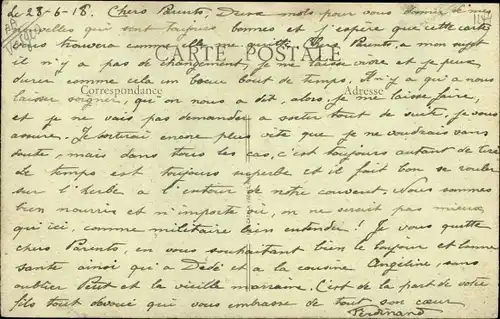 le 28-6-18. Chers Parents, Deux mots pour vous donner de mes
nouvelles qui sont toujours bonnes et j'espère que cette carte
vous trouvera comme elle me quitte. Chers Parents, a mon sujet
CARTE POSTALE
il n'y a pas de changement, je me laisse vivre et je peux
durer comme cela un beau bout de temps. Il n'y a qu'a nous
Correspondance
Adresse
laisser soigner, qu'on nous a dit, alors je me laisse faire,
et je ne vais pas demander a sortir tout de suite, je vous
assure. Je sortirai encore plus vite que je ne voudrais sans
doute, mais dans tous les cas, c'est toujours autant de tiré
Le temps est toujours superbe et il fait bon se rouler
sur l'herbe a l'entour de notre couvent. Nous sommes
bien nourris et n'importe où, on ne serait pas mieux
qu'ici, comme militaire bien entendu! Je vous quitte
chers Parents, en vous souhaitant bien le bonjour et bonne
santé ainsi qu'a Dédé et a la cousine Angéline, sans
oublier Petit et la vieille marraine. C'est de la part de votre
fils tout dévoué qui vous embrasse de tout son cœur
Ferdinand